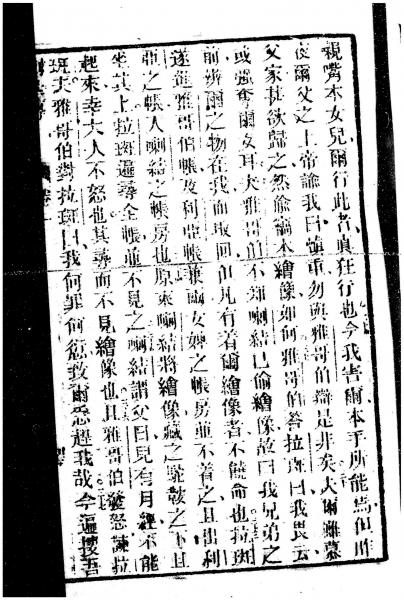 親嘴本女兒爾行此者真狂行也今我害爾本手所能焉但昨
夜爾父之上帝諭我曰慎重勿與雅哥伯辯是非矣夫爾雖慕
父家甚欲歸之然偷竊本繪像如何雅哥伯答拉班曰我畏云
或强奪爾女耳夫雅哥伯不知喇結已偷繪像故曰我兄弟之
前辨爾之物在我而取回但凡有着爾繪像者不饒命也拉班
遂進雅哥伯帳及利亞帳兼兩女婢之帳房並不着之且出利
亞之帳人喇結之帳房也原來喇結將繪像藏之駝鞍之下且
坐其上拉班遍尋全帳並不見之喇結謂父曰兒有月經不能
起來幸大人不怒也其尋而不見繪像也且雅哥伯發怒諫拉
班夫雅哥伯對拉班曰我何罪何愆致爾恐趕我哉今遍搜吾